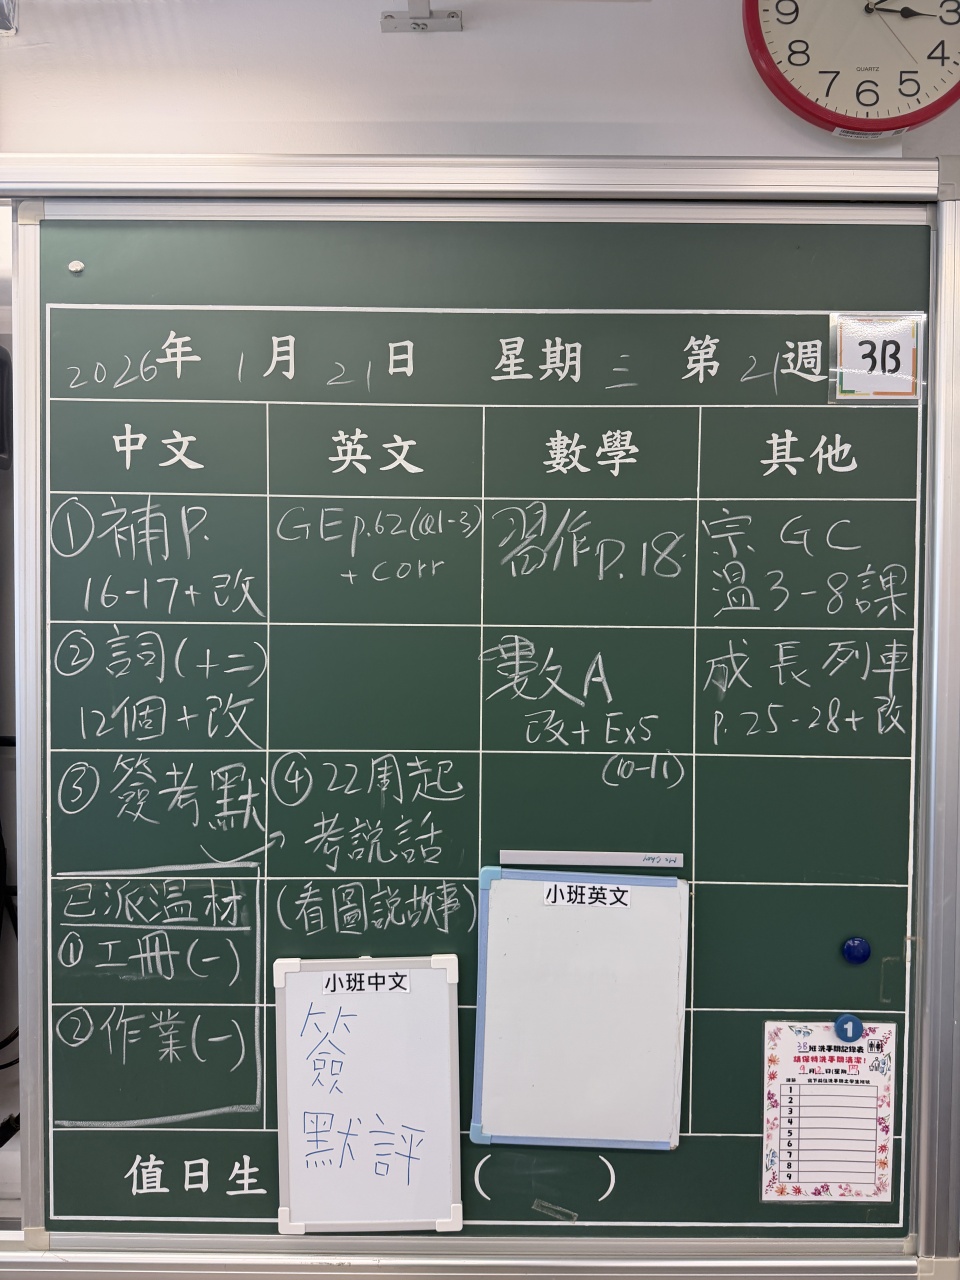 9 3
8 4
7 6 5
QUARTZ
2026年 1月 21日 星期三 第21週 3B
中文 英文 數學 其他
①補P.
16-17+改
GE p.62(Q1-3)
+ corr
習作P.18
宗 GC
溫3-8課
②詞(十二)
12個+改
數A
改+Ex5
(10-11)
成長列車
p.25-28+改
③簽考默
④22周起
考說話
(看圖說故事)
已派溫材
①工冊(一)
②作業(一)
小班英文
小班中文
簽
默評
1
3B班洗手間記錄表
請保持洗手間清潔!
1
2
3
4
5
6
7
8
9
值日生 ( )